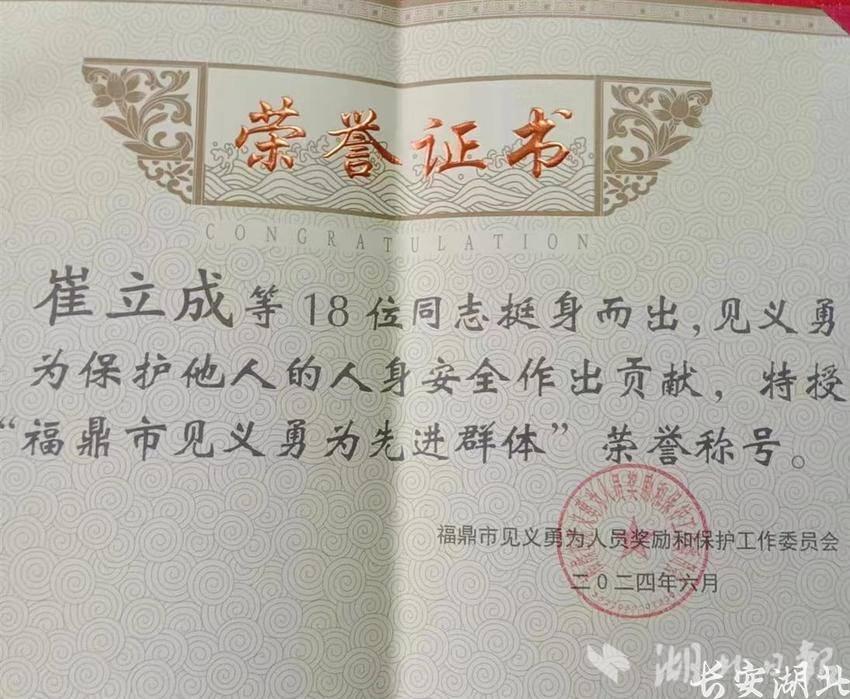 荣誉证书
CONGRATULATION
崔立成等18位同志挺身而出，见义勇
为保护他人的人身安全作出贡献，特授
“福鼎市见义勇为先进群体”荣誉称号。
福鼎市见义勇为人员奖励和保护工作委员会
二〇二四年六月
湖北日报
长安湖北